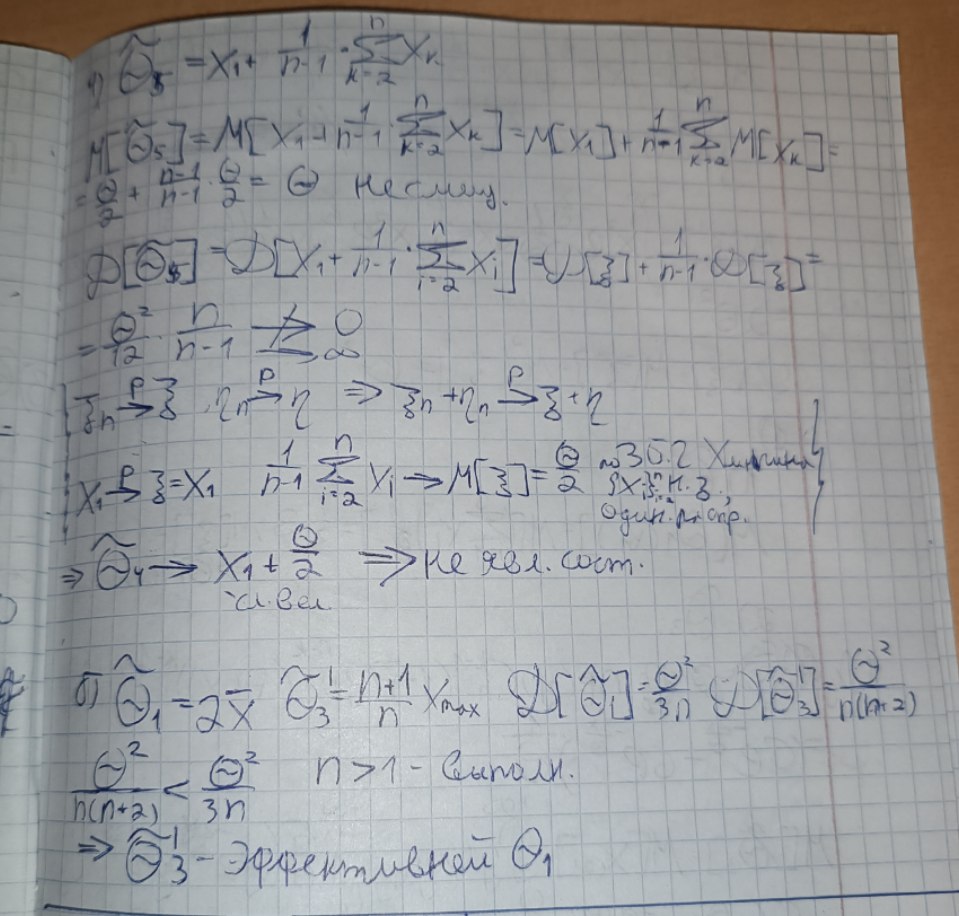 Θ̃₅ = X₁ + 1/(n-1) · Σ_{k=2}^{n} X_k
M[Θ̃₅] = M[X₁ + 1/(n-1) · Σ_{k=2}^{n} X_k] = M[X₁] + 1/(n-1) Σ_{k=2}^{n} M[X_k] =
= Θ/2 + (n-1)/(n-1) · Θ/2 = Θ несмещ.
D[Θ̃₅] = D[X₁ + 1/(n-1) · Σ_{i=2}^{n} X_i] = D[ξ] + 1/(n-1) · D[ξ] =
= Θ²/12 · n/(n-1) ↛ 0 ∞
ξ_n →^P ξ , η_n →^P η ⇒ ξ_n + η_n →^P ξ + η
X₁ →^P ξ = X₁ 1/(n-1) Σ_{i=2}^{n} X_i → M[ξ] = Θ/2 по ЗБЧ Хинчина
н.з.,
один. распр.
⇒ Θ̃₄ → X₁ + Θ/2 ⇒ не явл. сост.
сл. вел.
б) Θ̃₁ = 2x̄ Θ̃₃¹ = (n+1)/n X_max D[Θ̃₁] = Θ²/3n D[Θ̃₃¹] = Θ²/(n(n+2))
Θ²/(n(n+2)) < Θ²/3n n > 1 - выполн.
⇒ Θ̃₃¹ - эффективней Θ₁